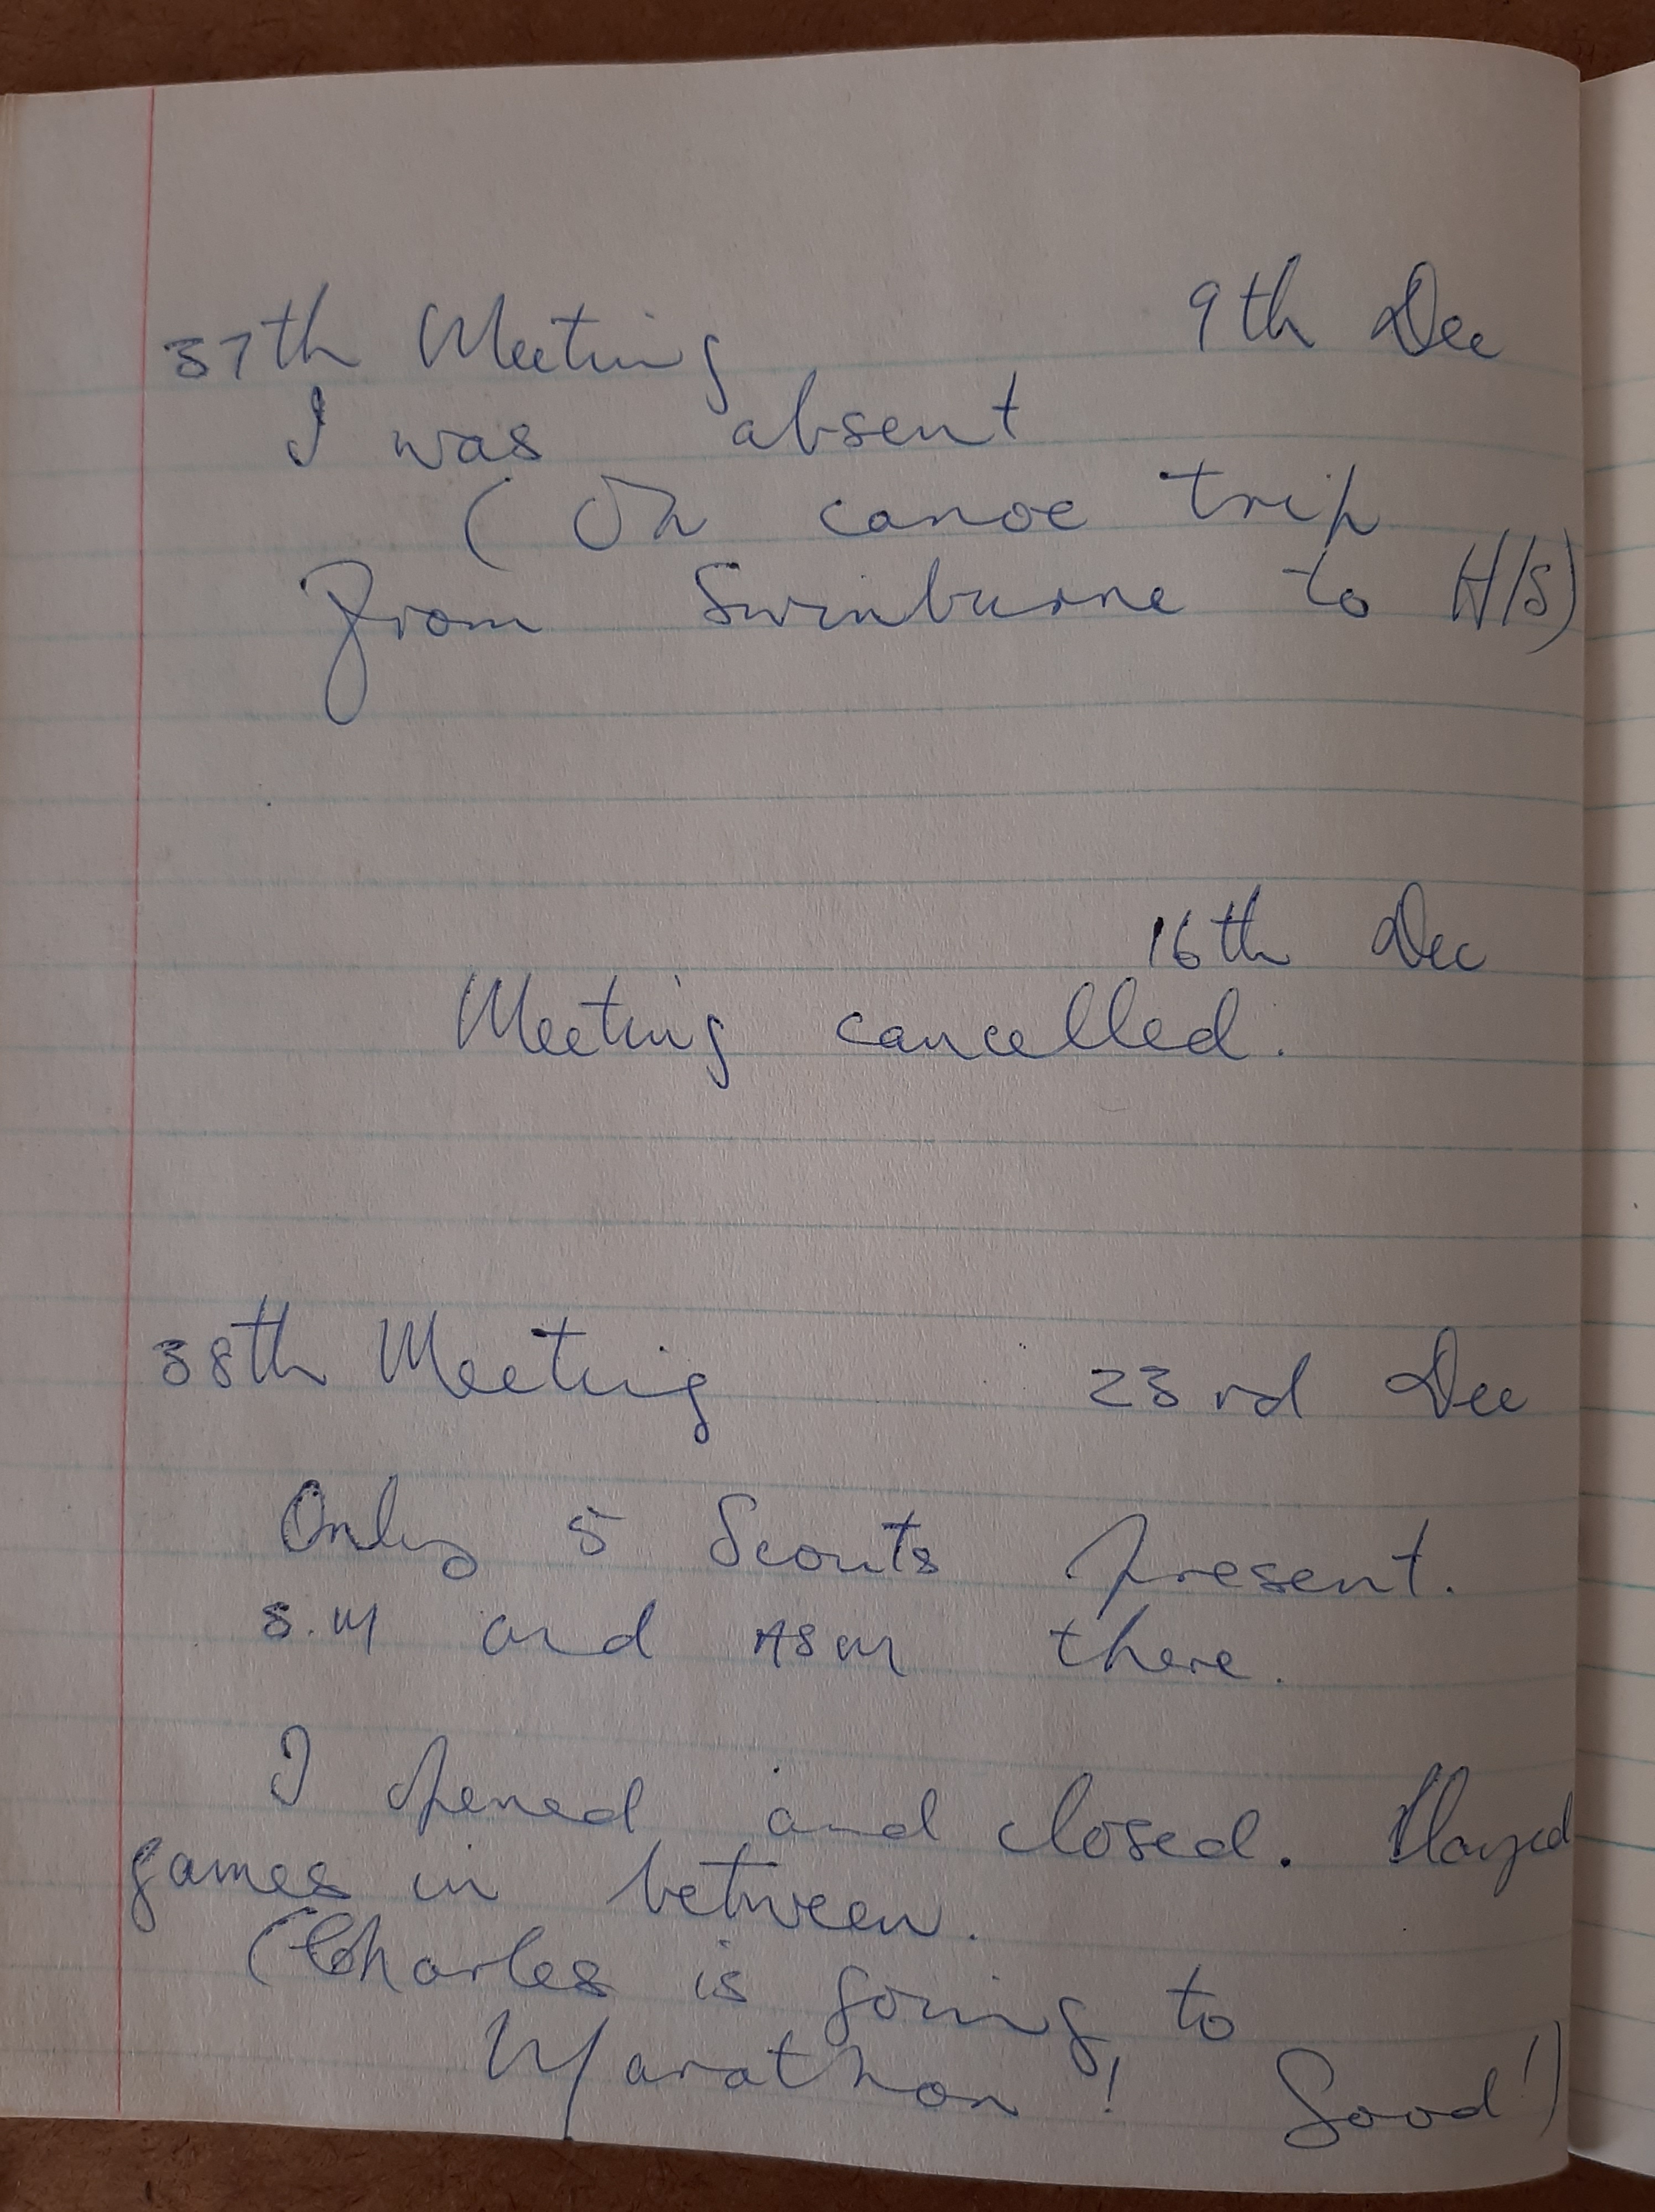 37th Meeting 9th Dec
I was absent
(On canoe trip
from Swinburne to H/S)
16th Dec
Meeting cancelled.
38th Meeting 23rd Dec
Only 5 Scouts present.
S.M and ASM there.
I opened and closed. Played
games in between.
(Charles is going to
Marathon! Good!)